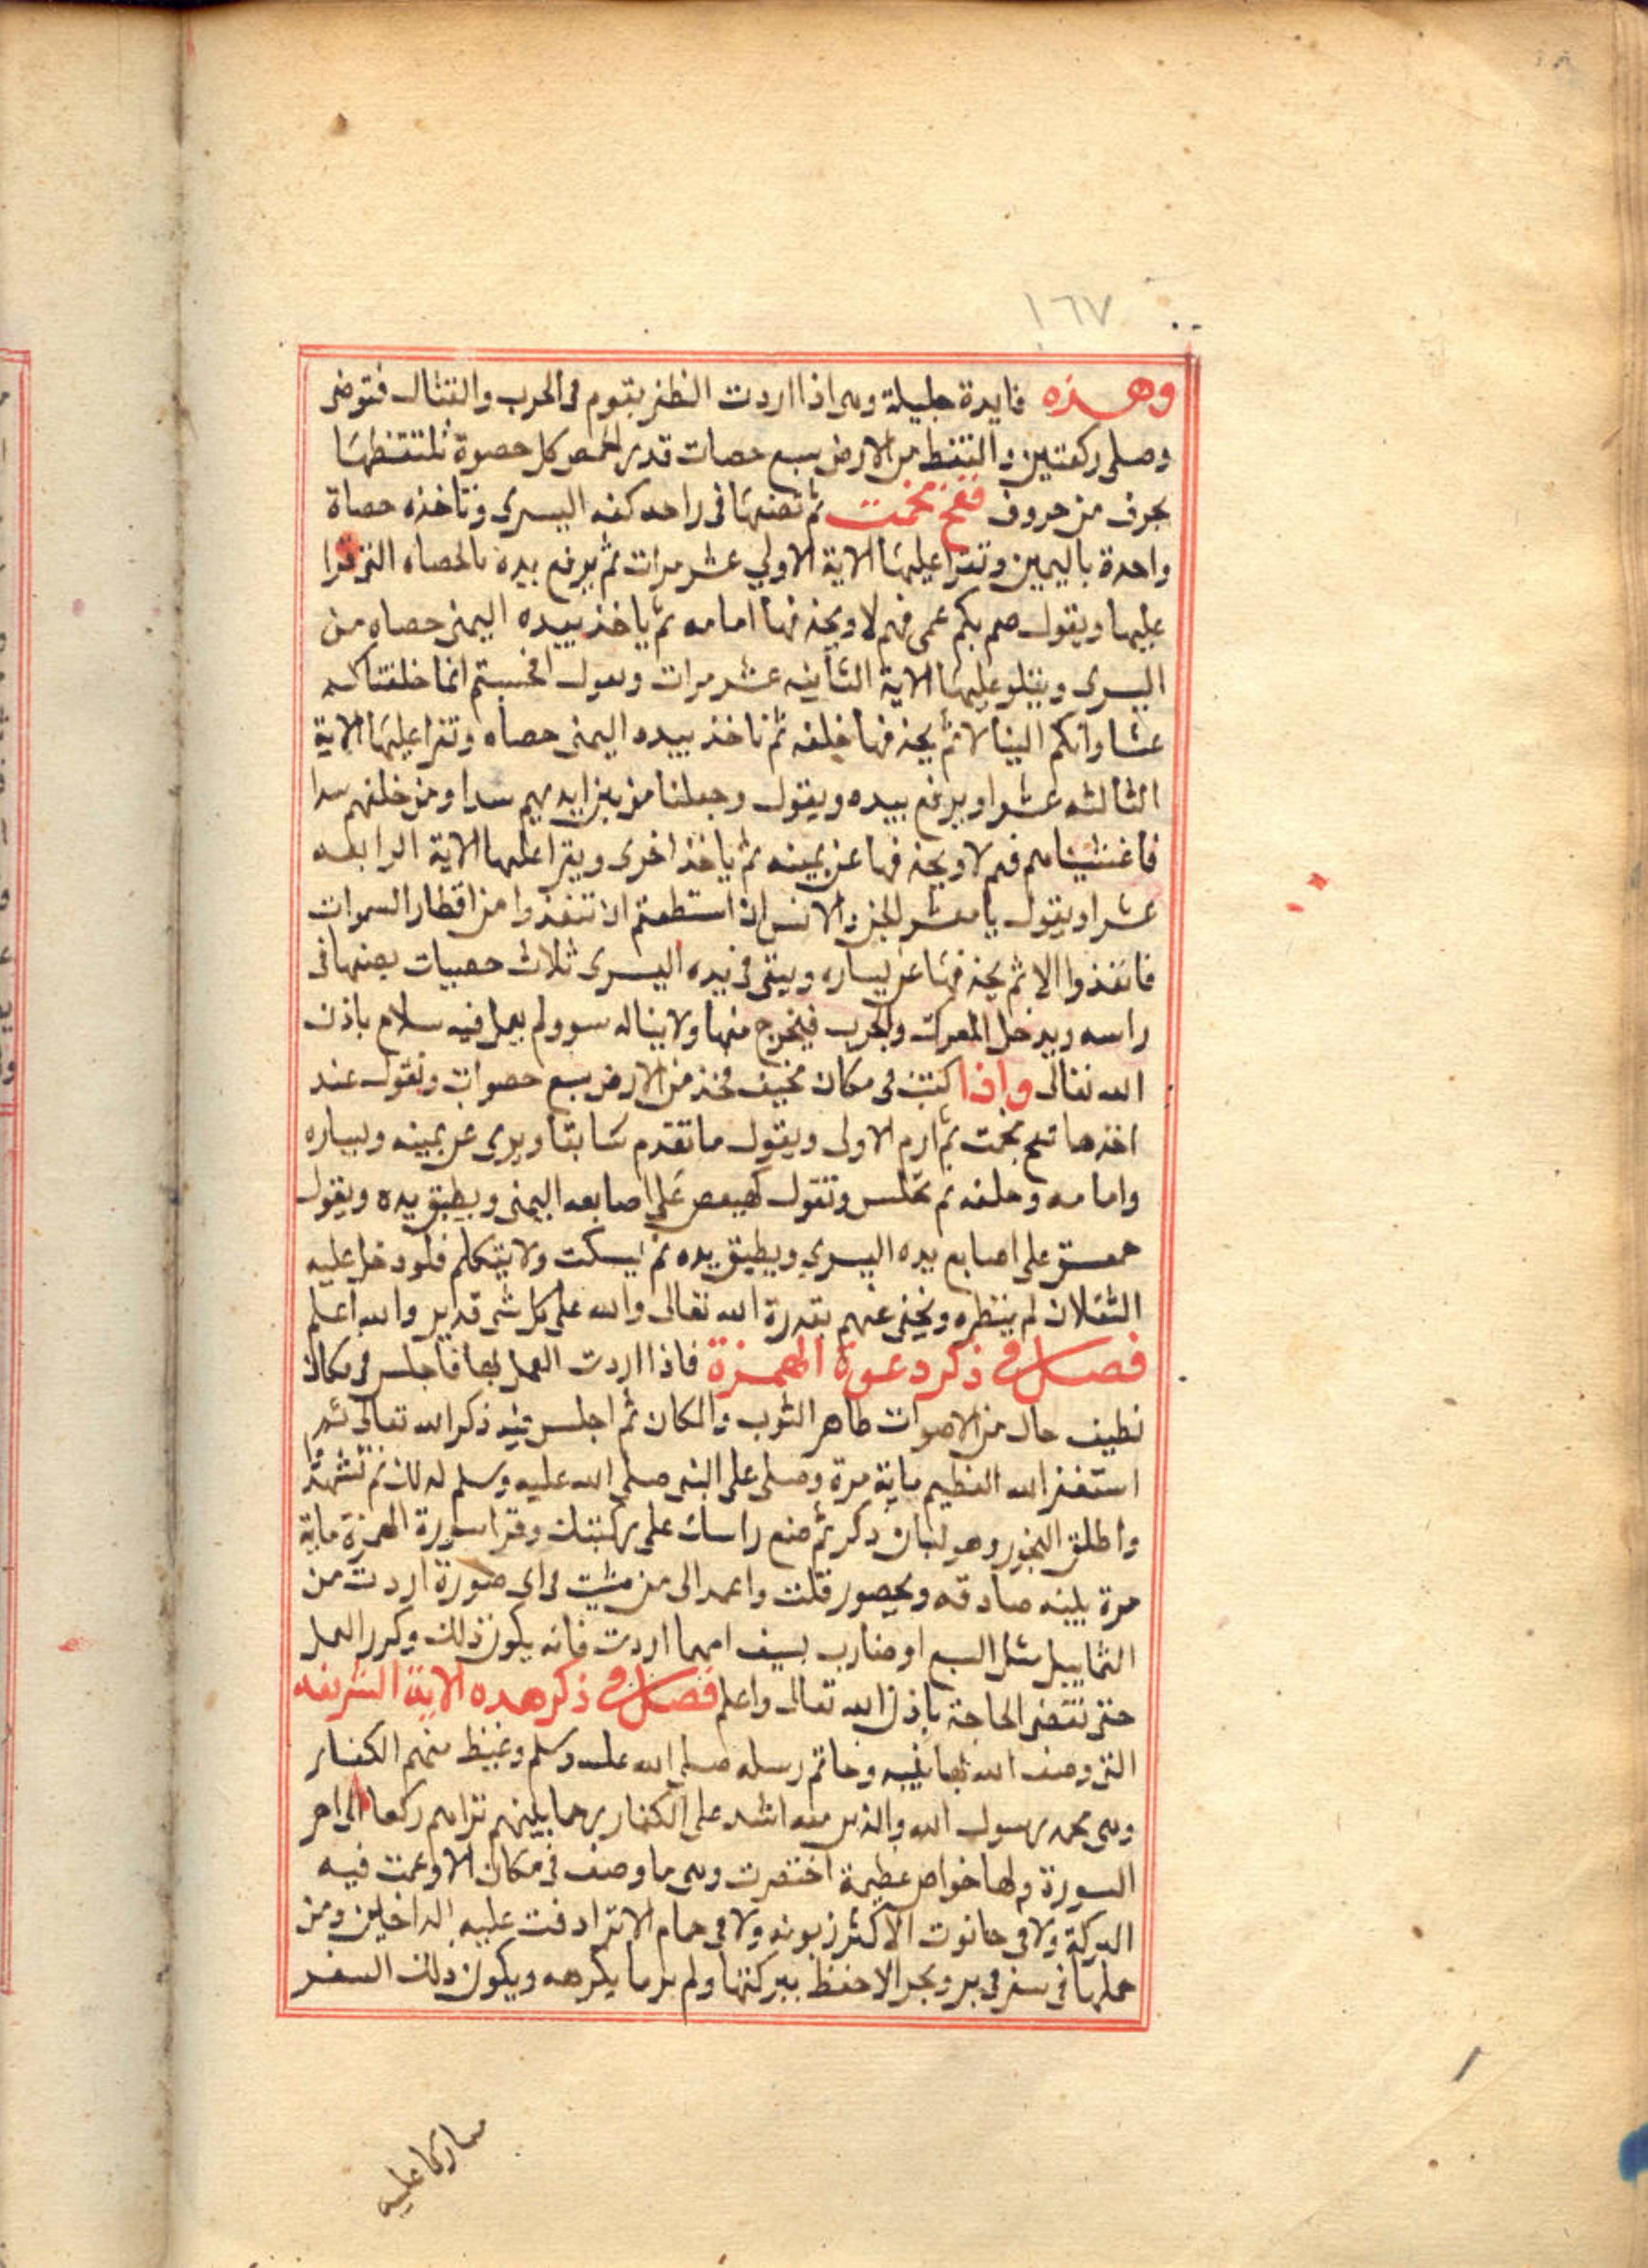 ١٦٧
وهذه فايدة جليلة وهى اذا اردت الظفر بقوم فى الحرب والقتال فتوضى
وصلى ركعتين والتقط من الارض سبع حصات قدر الحمص كل حصوة تلتقطها
بحرف من حروف ثم تضعها فى راحه كفه اليسرى وتاخذه حصاة
واحدة باليمين وتقرا عليها الاية الاولي عشر مرات ثم يرفع يده بالحصاه التى قرا
عليها ويقول صم بكم عمى فهم لا ويحذفها امامه ثم ياخذ بيده اليمنى حصاه من
اليسرى ويتلو عليها الاية الثانيه عشر مرات ويقول افحسبتم انما خلقناكم
عبثا وانكم الينا لا ثم يحذفها خلفه ثم ياخذ بيده اليمنى حصاه وتقرا عليها الاية
الثالثه عشرا ويرفع بيده ويقول وجعلنا من بين ايديهم سدا ومن خلفهم سدا
فاغشيناهم فهم لا ويحذفها عن يمينه ثم ياخذ اخرى ويقرا عليها الاية الرابعه
عشرا ويقول يا معشر الجن والانس ان استطعتم ان تنفذوا من اقطار السموات
فانفذوا الا ثم يحذفها عن يساره ويبقى فى يده اليسرى ثلاث حصيات يضعها فى
راسه ويدخل المعركة والحرب فيخرج منها ولا يناله سو ولم يعمل فيه سلاح باذن
الله تعالى واذا كنت فى مكان مخيف فخذ من الارض سبع حصوات وتقول عند
اخذها ثم ارم الاولى ويقول ما تقدم سابقا ويرمى عن يمينه ويساره
وامامه وخلفه ثم تجلس وتقول كهيعص على اصابعه اليمنى ويطبق يده ويقول
حمعسق على اصابع يده اليسرى ويطبق يده ثم يسكت ولا يتكلم فلو دخل عليه
الثقلان لم ينظره ويخفى عنهم بقدرة الله تعالى والله على كل شى قدير والله اعلم
فصل فى ذكر دعوة الهمزة فاذا اردت العمل بها فاجلس فى مكان
نظيف خال من الاصوات طاهر الثوب والمكان ثم اجلس ذكر الله تعالى ثم
استغفر الله العظيم ماية مرة وصلى على النبى صلى الله عليه وسلم كذلك ثم تشهد
واطلق البخور وهو لبان ذكر ثم ضع راسك على ركبتك وقرا سورة الهمزة ماية
مرة بنيه صادقه وبحضور قلت واعمد الى من شيت فى اى صورة اردت من
التماثيل مثل السبع او ضارب بسيف امهما اردت فانه يكون ذلك وكرر العمل
حتى تنقضى الحاجة باذن الله تعالى واعلم فصل فى ذكر هذه الاية الشريفه
التى وصف الله بها نبيه وخاتم رسله صلى الله عليه وسلم وغيظ منهم الكفار
وهى محمد رسول الله والذين معه اشد على الكفار رحما بينهم تراهم ركعا الى اخر
السورة ولها خواص عظيمة اختصرت وهى ما وصف فى مكان الا وعمت فيه
البركة ولا فى حانوت الا كثر زبونه ولا فى حمام الا ترادفت عليه الداخلين ومن
حملها فى سفر فى بر وبحر الا حفظ ببركتها ولم ير ما يكرهه ويكون ذلك السفر
مباركا عليه